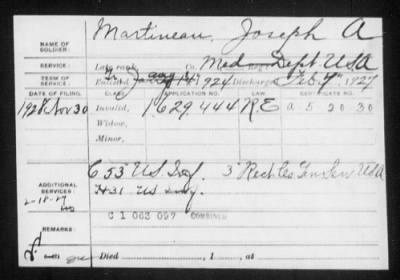 Martineau, Joseph A
NAME OF SOLDIER:
SERVICE: Late rank, Co. Med Dept USA
TERM OF SERVICE: Enlisted 1924 Discharged Feb 1927
DATE OF FILING. CLASS. APPLICATION NO. LAW. CERTIFICATE NO.
1928 Nov 30 Invalid, 1629.444 R.E a 5 20 30
Widow,
Minor,
ADDITIONAL SERVICES: C 53 US Inf. 3" USA
H 31 US Inf.
2-18-27
C 1 063 097 COMBINED
REMARKS:
Died , 1 , at